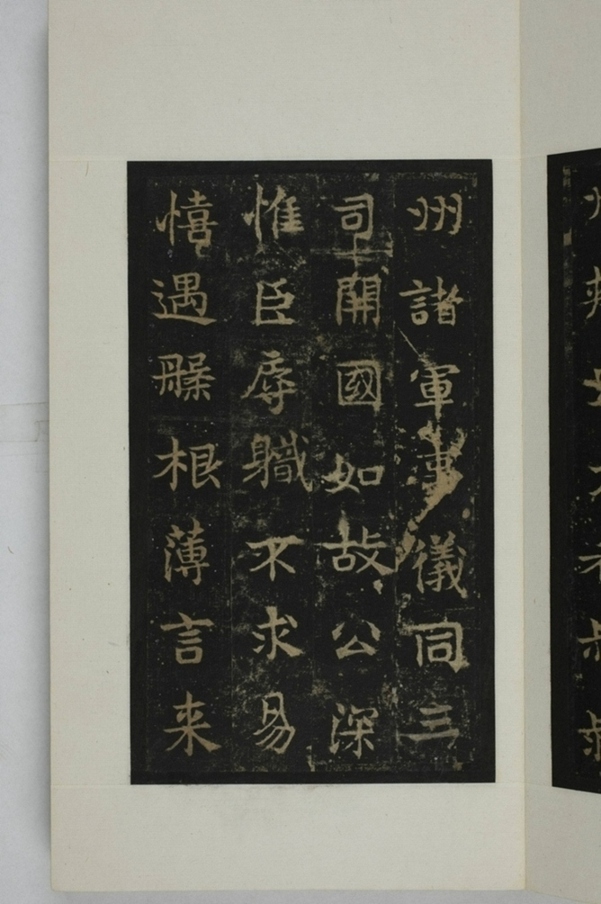 州諸軍事儀同三
司開國如故公深
惟臣辱職不求易
憘遇躁根薄言来